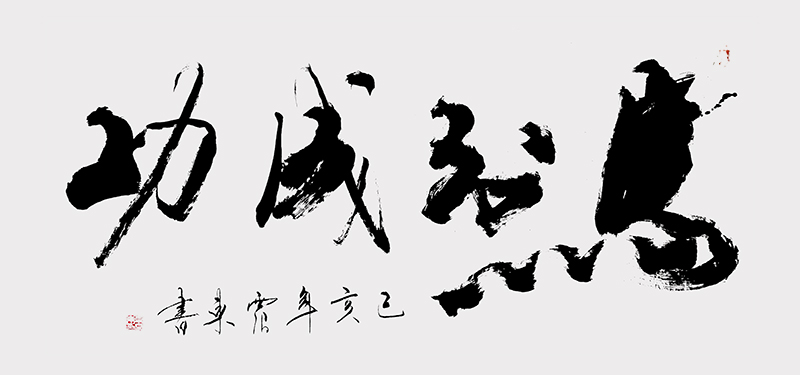 馬到成功
己亥年東書